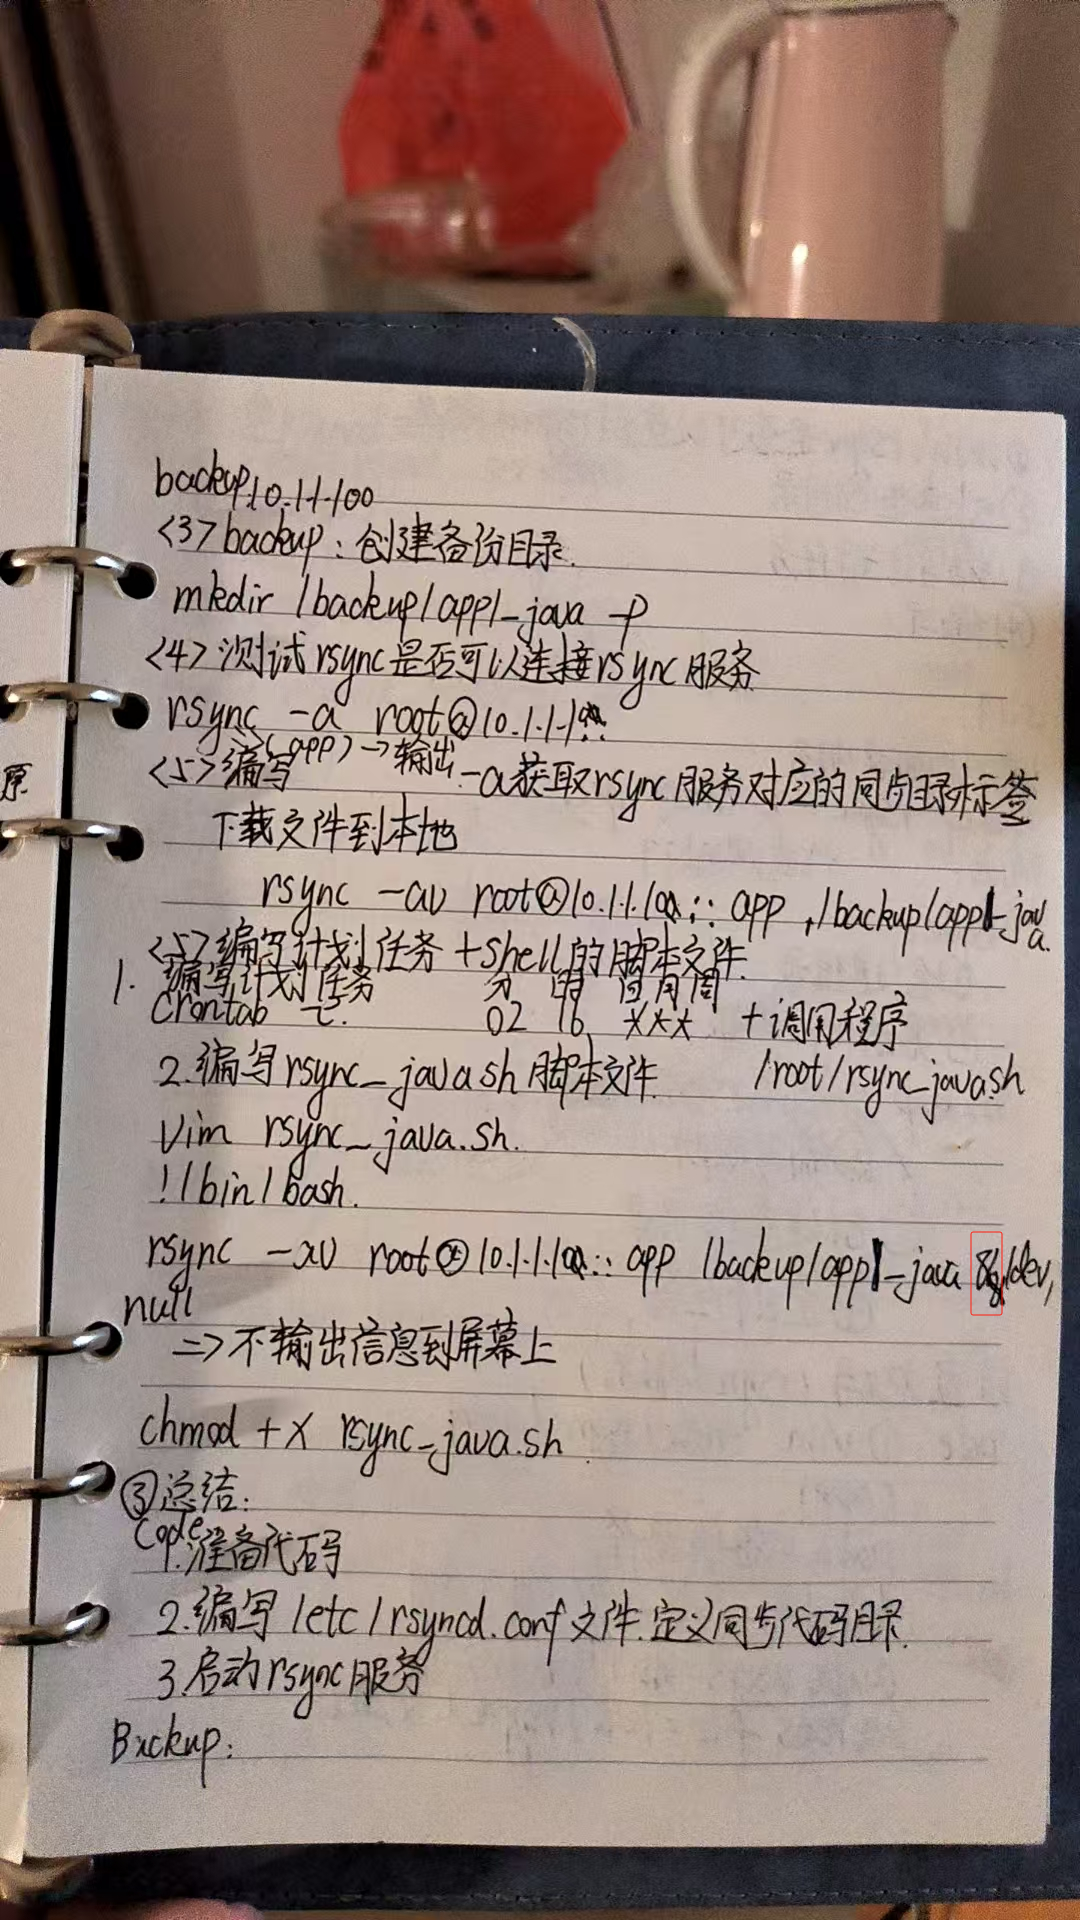 backup:10.1.1.100
<3>backup:创建备份目录.
mkdir /backup/app/_java -p
<4>测试rsync是否可以连接rsync服务
rsync -a root@10.1.1.1
(app) → 输出
原
<5>编写 -a获取rsync服务对应的同步目录标签
下载文件到本地
rsync -av root@10.1.1.10 :: app /backup/app_java
<5>编写计划任务+shell的脚本文件.
1. 编写计划任务 分 时 日 月 周
crontab -e. 02 16 *** +调用程序
2.编写rsync_java.sh脚本文件. /root/rsync_java.sh
vim rsync_java.sh.
!/bin/bash.
rsync -av root@10.1.1.10 :: app /backup/app_java /dev,
null
=>不输出信息到屏幕上
chmod +x rsync_java.sh
③总结:
Code
1.准备代码
2.编写/etc/rsyncd.conf文件.定义同步代码目录.
3.启动rsync服务
Backup: